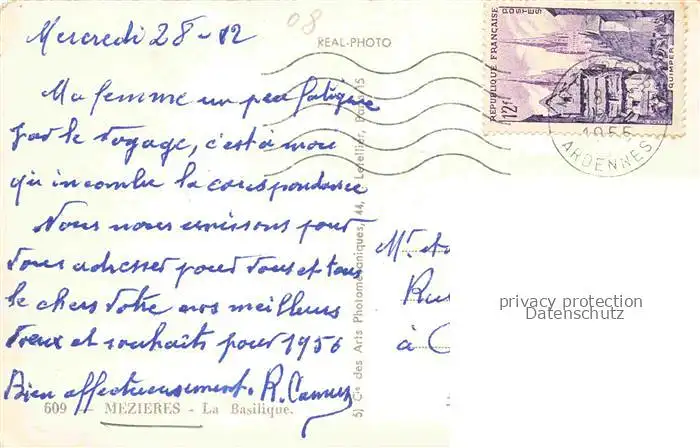 Mercredi 28-12
08
REAL-PHOTO
Ma femme un peu fatiguée
par le voyage, c'est à moi
qu'incombe la correspondance
Nous nous unissons pour
vous adresser pour vous et tous
le chers votre nos meilleurs
vœux et souhaits pour 1956
Bien affectueusement. R. Camus
609 - MÉZIÈRES - La Basilique.
des Arts Photomécaniques, 44, Letellier, Paris-15
RÉPUBLIQUE FRANÇAISE
POSTES
12f
QUIMPER
1955
ARDENNES
Mr. et
Rue
à C
privacy protection
Datenschutz